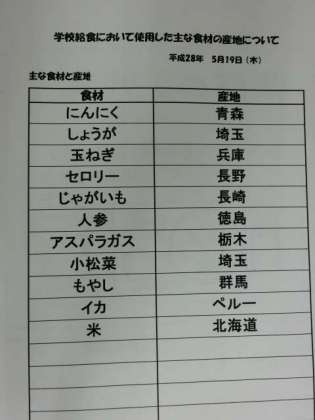 学校給食において使用した主な食材の産地について
平成28年　5月19日（木）
主な食材と産地
食材　産地
にんにく　青森
しょうが　埼玉
玉ねぎ　兵庫
セロリー　長野
じゃがいも　長崎
人参　徳島
アスパラガス　栃木
小松菜　埼玉
もやし　群馬
イカ　ペルー
米　北海道